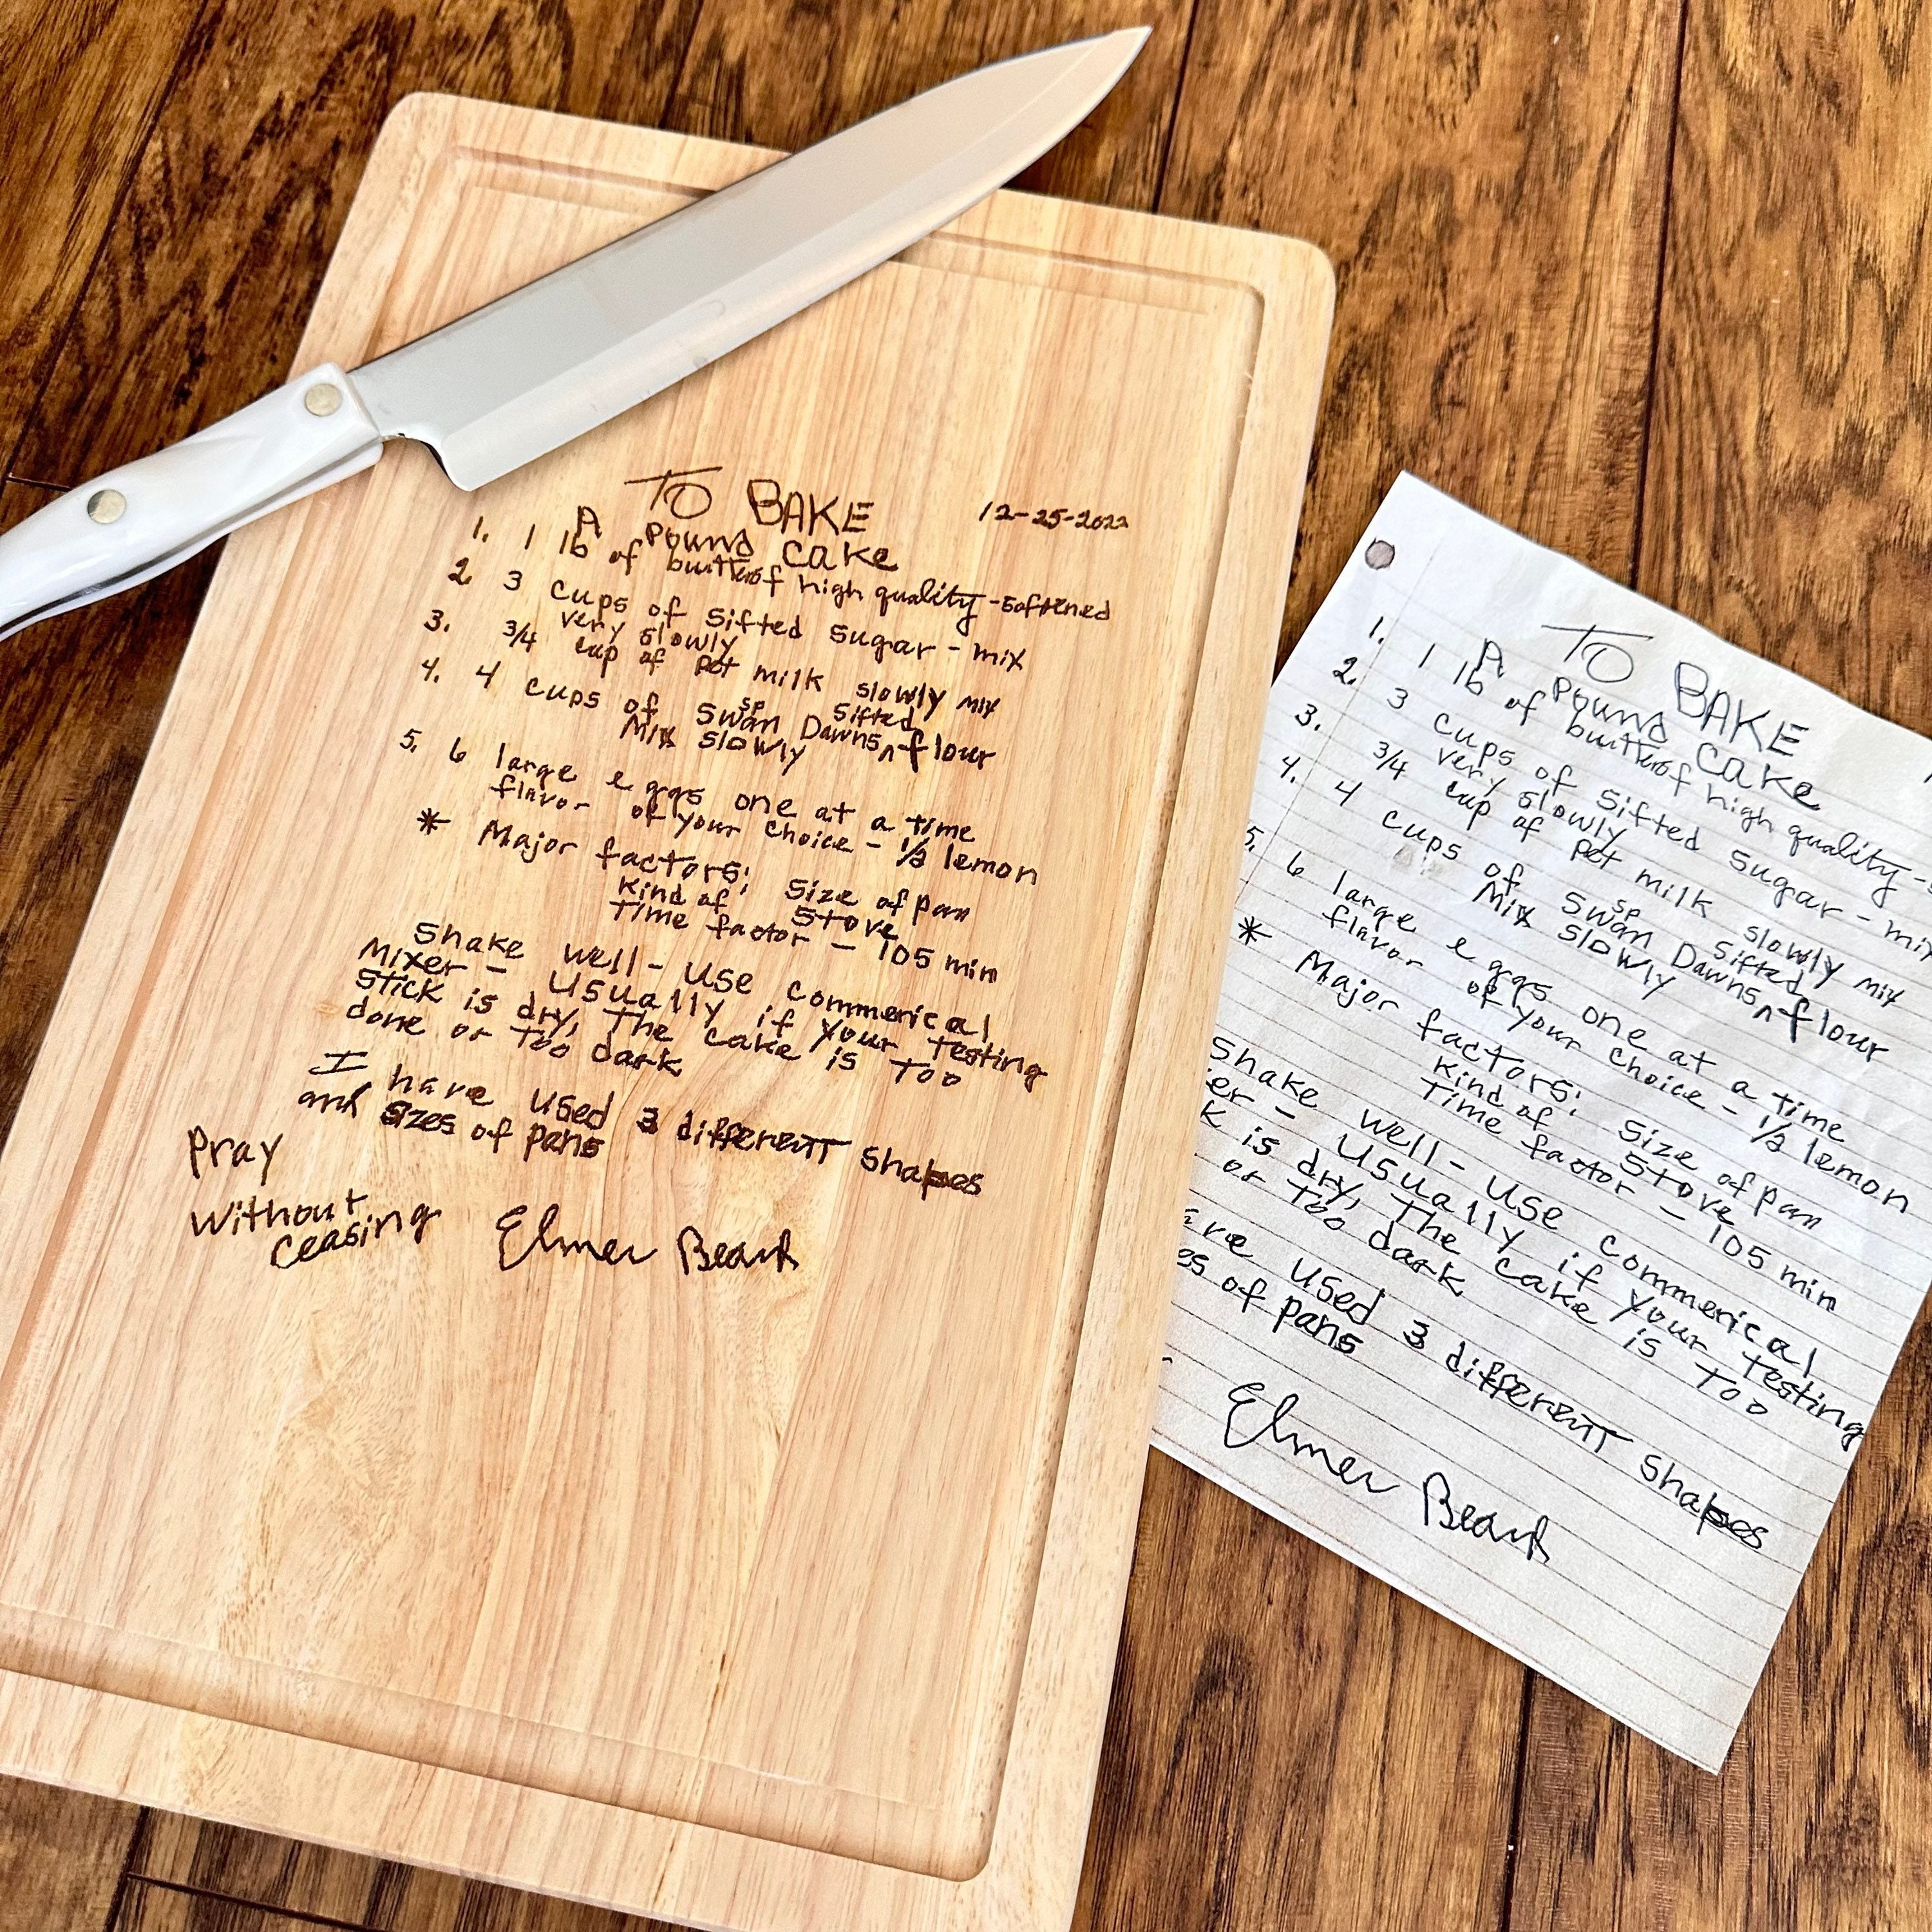 TO BAKE 12-25-2022
A Pound Cake
1. 1 lb of butter of high quality - softened
2. 3 cups of sifted sugar - mix
very slowly
3. 3/4 cup of Pet milk slowly mix
4. 4 cups of Swan Dawns ^ flour
sp sifted
Mix slowly
5. 6 large eggs one at a time
flavor of your choice - 1/2 lemon
* Major factors; size of pan
Kind of stove
Time factor - 105 min
Shake well - use commerical
Mixer - Usually if your testing
stick is dry, the cake is too
done or too dark
I have used 3 different shapes
and sizes of pans
Pray
without
ceasing Elmer Beard
TO BAKE
A Pound Cake
1. 1 lb of butter of high quality -
2. 3 cups of sifted sugar - mix
very slowly
3. 3/4 cup of Pet milk slowly mix
4. 4 cups of Swan Dawns ^ flour
sp sifted
Mix slowly
5. 6 large eggs one at a time
flavor of your choice - 1/2 lemon
* Major factors; size of pan
Kind of stove
Time factor - 105 min
Shake well - use commerical
er - Usually if your testing
k is dry, the cake is too
or too dark
ave used 3 different shapes
es of pans
Elmer Beard